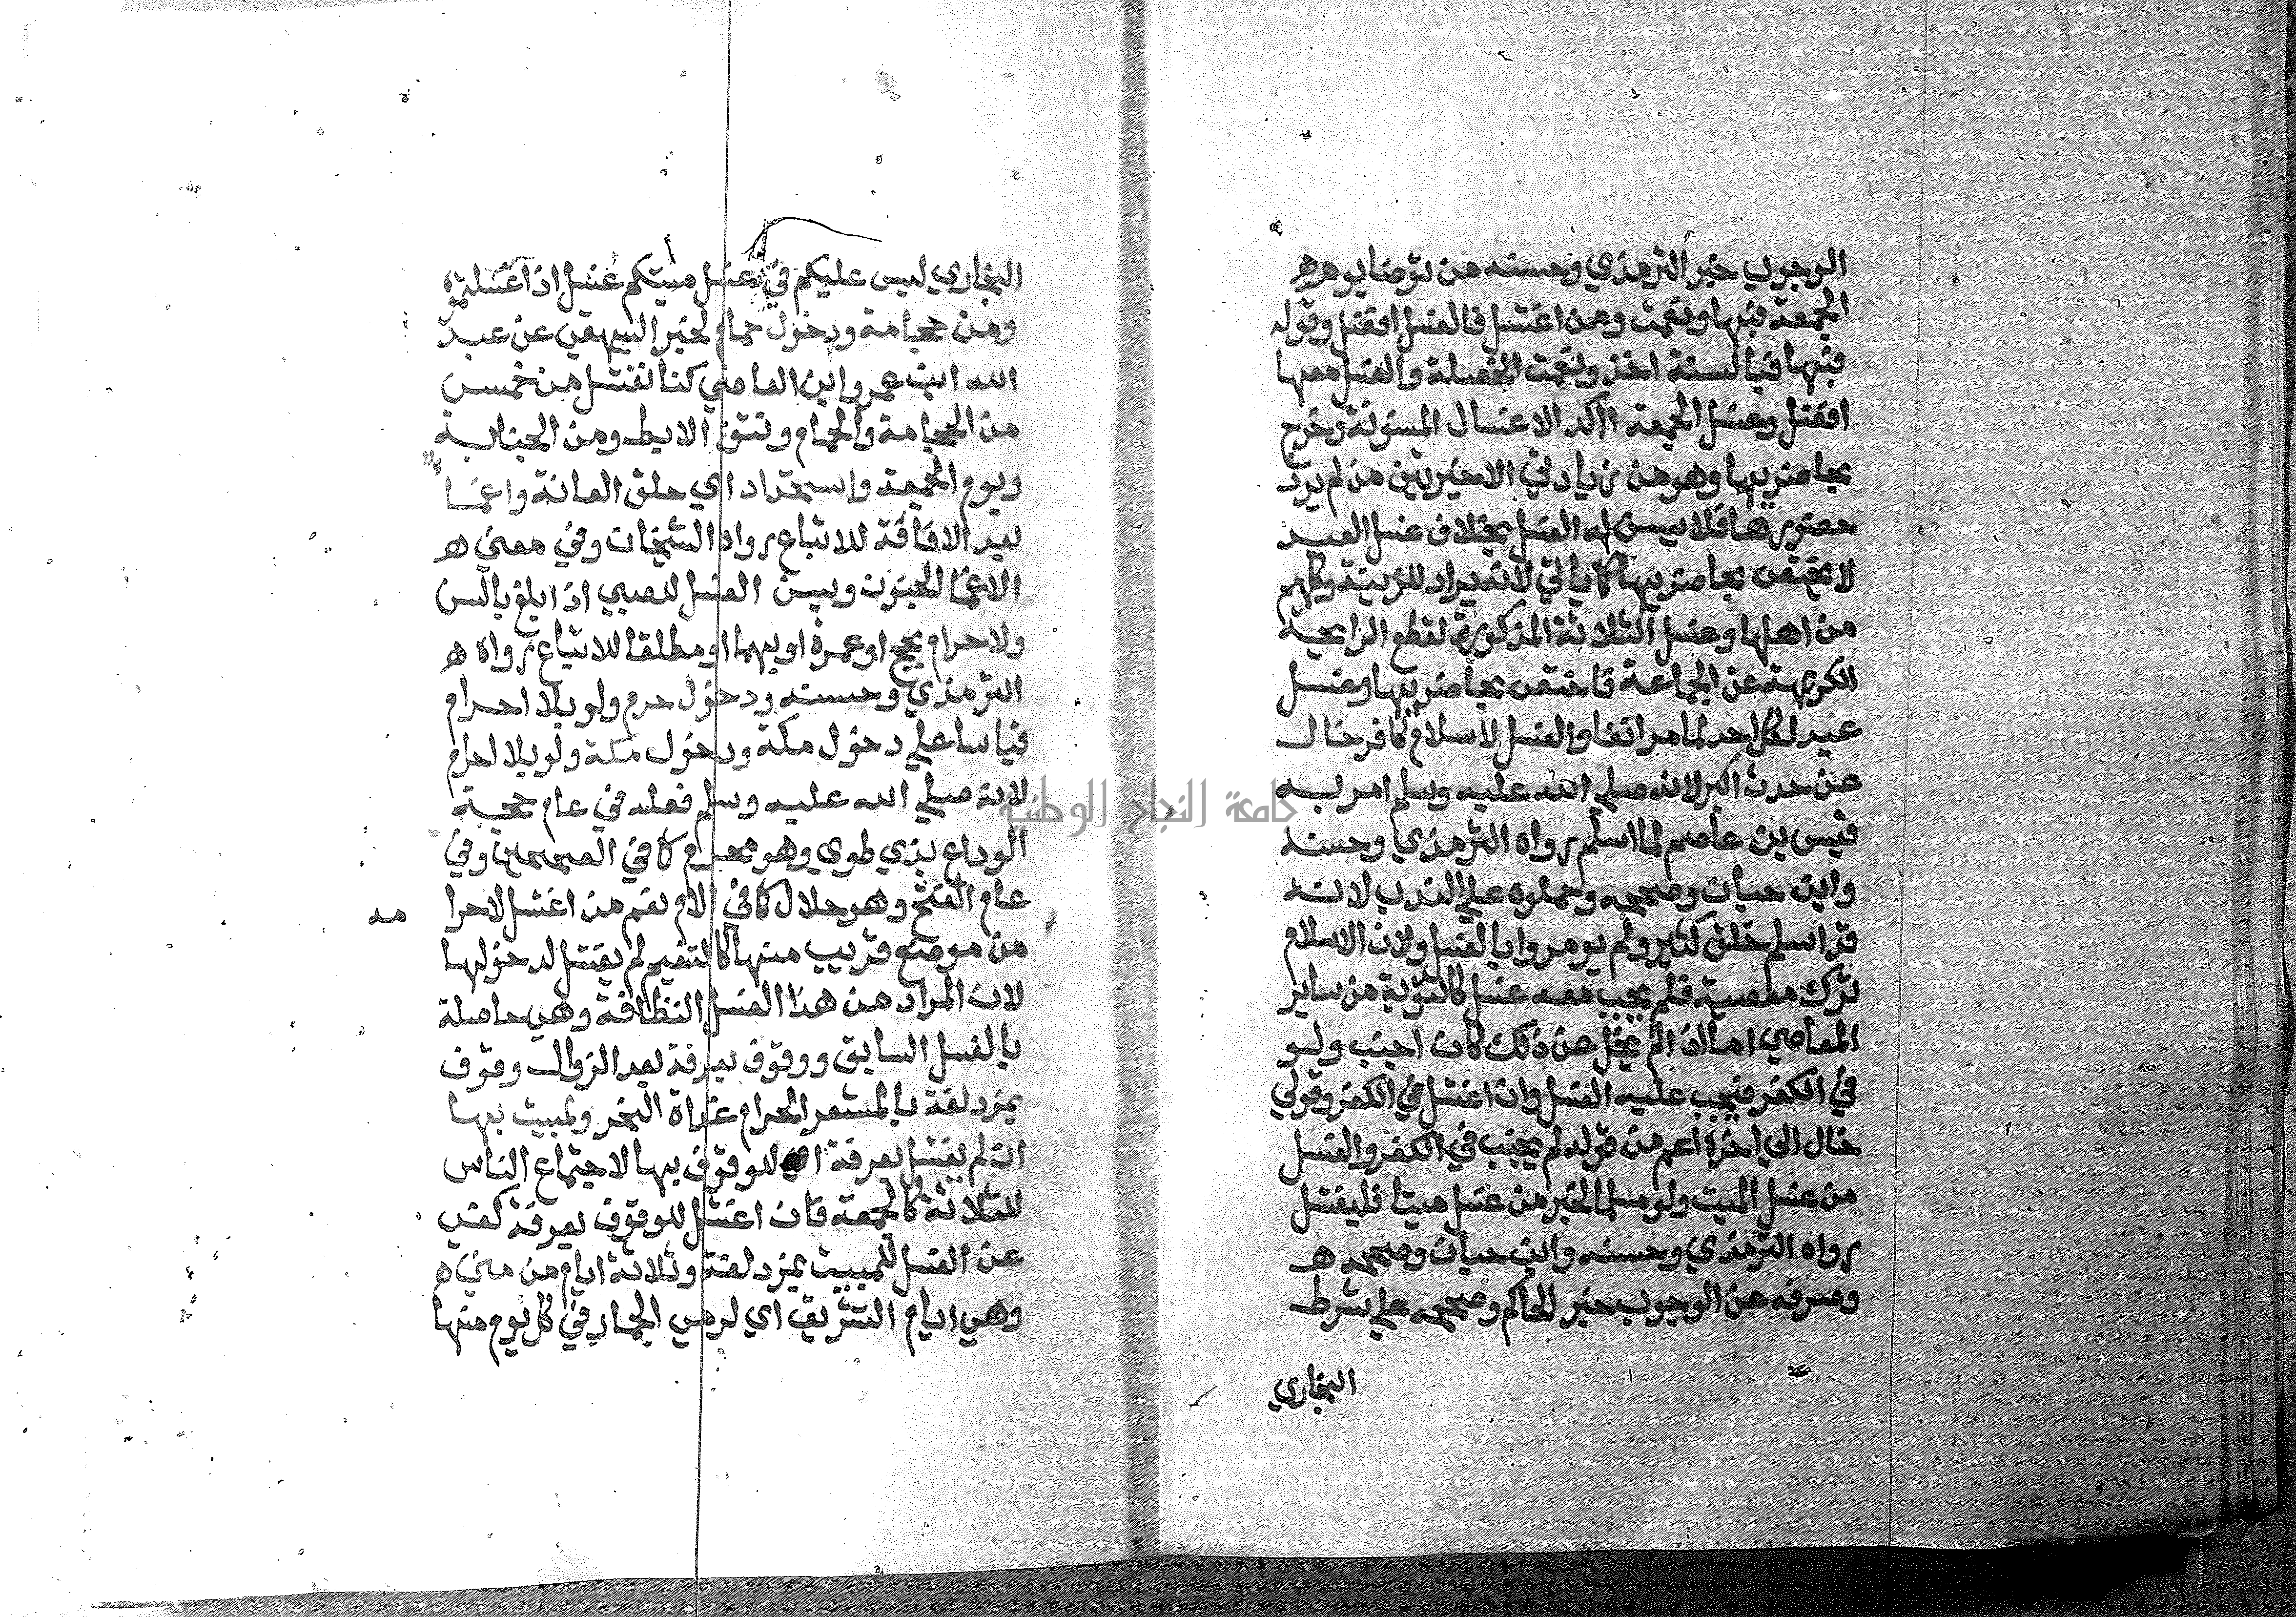 الوجوب خبر الترمذي وحسنه من توضا يوم ه
الجمعة فبها ونعمت ومن اغتسل فالغسل افضل وقوله
فبها فبالسنة اخذ ونعمت الخصلة والغسل معها
افضل وغسل الجمعة اكد الاغسال المسنونة وخرج
بحاضريها وهو من زيادتي الاخيريتين من لم يرد
حضورها فلا يسن له الغسل بخلاف غسل العيد
لا يختص بحاضريها كما ياتي لانه يراد للزينة وكلهم
من اهلها وغسل الثلاثة المذكورة لقطع الرايحة
الكريهة عن الجماعة فاختص بحاضريها وغسل
عيد لكل احد لما مر انفا والغسل لاسلام كافر خال
عن حدث اكبر لانه صلي الله عليه وسلم امر به
قيس بن عاصم لما اسلم رواه الترمذي وحسنه
وابن حبان وصححه وحملوه علي الندب لانه
قد اسلم خلق كثير ولم يومروا بالغسل ولان الاسلام
ترك معصية فلم يجب معه غسل كالتوبة من ساير
المعاصي اما اذا لم يخل عن ذلك كان اجنب ولو
في الكفر فيجب عليه الغسل وان اغتسل في الكفر وقولي
خال الي اخره اعم من قوله لم يجنب في الكفر والغسل
من غسل الميت ولو مسلما لخبر من غسل ميتا فليغتسل
رواه الترمذي وحسنه وابن حبان وصححه ه
وصرفه عن الوجوب خبر الحاكم وصححه علي شرط
البخاري
البخاري ليس عليكم في غسل ميتكم غسل اذا غسلتموه
ومن حجامة ودخول حمام لخبر البيهقي عن عبد
الله ابن عمرو ابن العاصي كنا نغتسل من خمس
من الحجامة والحمام ونتف الابط ومن الجنابة
ويوم الجمعة واستحداد اي حلق العانة واغما
بعد الافاقة للاتباع رواه الشيخان وفي معني ه
الاغما الجنون ويسن الغسل للصبي اذا بلغ بالسن
ولاحرام بحج او عمرة او بهما او مطلقا للاتباع رواه ه
الترمذي وحسنه ودخول حرم ولو بلا احرام
قياسا علي دخول مكة ودخول مكة ولو بلا احرام
لانه صلي الله عليه وسلم فعله في عام حجة
الوداع بذي طوي وهو محرم كما في الصحيحين وفي
عام الفتح وهو حلال كما في الام نعم من اغتسل لاحرا
مه
من موضع قريب منها كالتنعيم لم يغتسل لدخولها
لان المراد من هذا الغسل النظافة وهي حاصلة
بالغسل السابق ووقوف بعرفة بعد الزوال وقوف
بمزدلفة بالمشعر الحرام غداة النحر ولمبيت بها
ان لم يغتسل بعرفة للوقوف بها لاجتماع الناس
للثلاثة كالجمعة فان اغتسل للوقوف بعرفة كفي
عن الغسل للمبيت بمزدلفة وثلاثة ايام من مني ه
وهي ايام التشريق اي لرمي الجمار في كل يوم منها
جامعة النجاح الوطنية